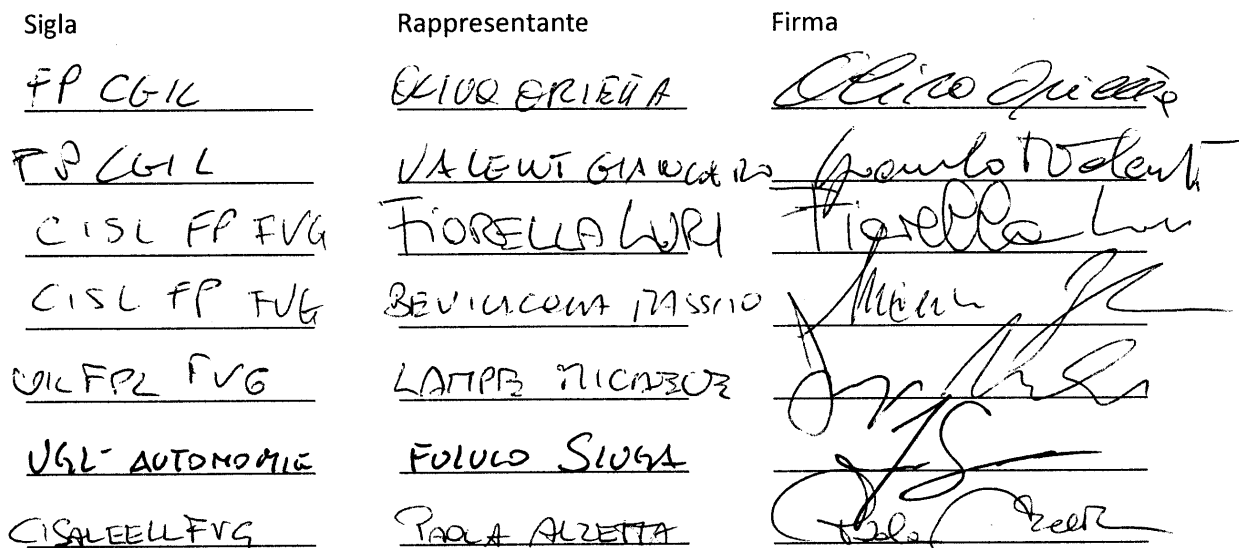 Sigla Rappresentante Firma
FP CGIL OLIVO ORIETTA Olivo Orietta
FP CGIL VALENTI GIANCARLO Giancarlo Valenti
CISL FP FVG FIORELLA LURI Fiorella Luri
CISL FP FVG BEVILACQUA MASSIMO
UIL FPL FVG LAMPE MICHELE
UGL-AUTONOMIE FULVIO SLUGA
CISAL EELL FVG PAOLA ALZETTA Paola Alzetta